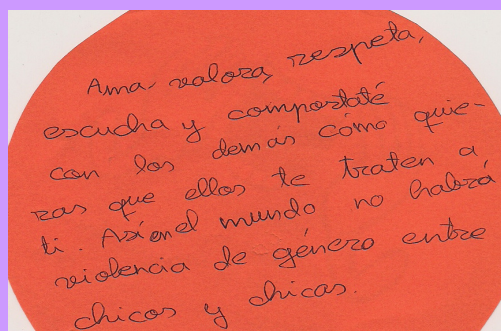 Ama, valora, respeta,
escucha y comportaté
con los demás cómo quie-
ras que ellos te traten a
ti. Así en el mundo no habrá
violencia de género entre
chicos y chicas.